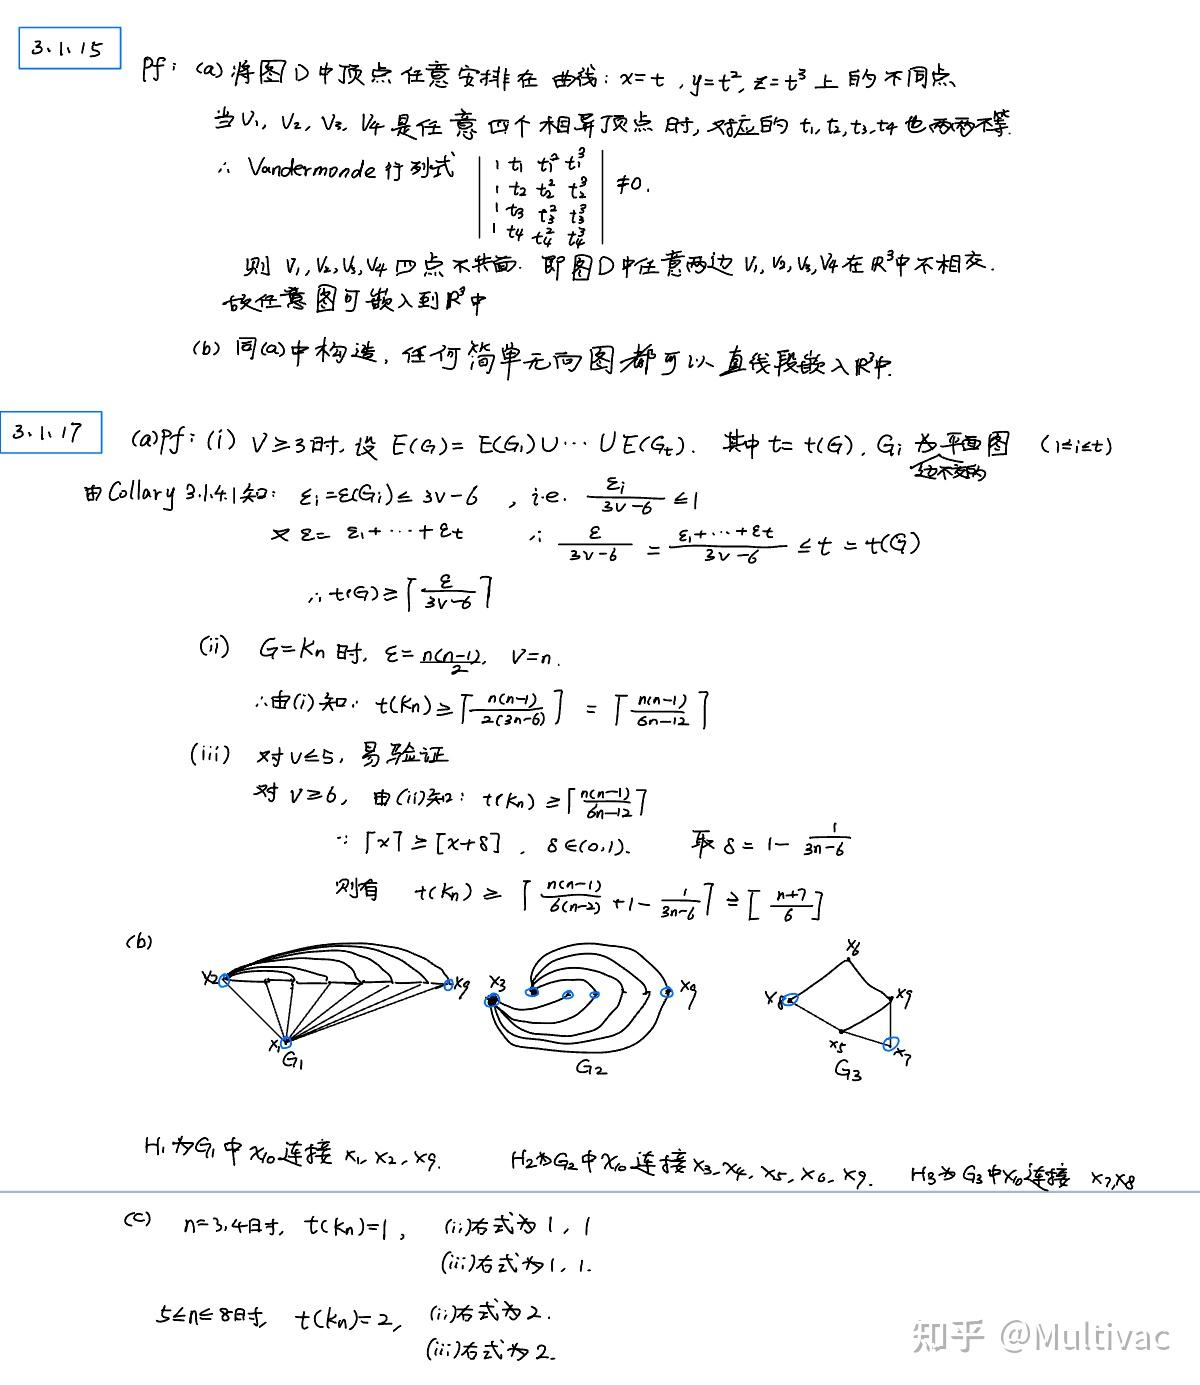 3.1.15
Pf: (a) 将图D中顶点任意安排在曲线: x=t, y=t², z=t³ 上的不同点
当 V₁, V₂, V₃, V₄ 是任意四个相异顶点时, 对应的 t₁, t₂, t₃, t₄ 也两两不等.
∴ Vandermonde 行列式 | 1 t₁ t₁² t₁³
1 t₂ t₂² t₂³
1 t₃ t₃² t₃³
1 t₄ t₄² t₄³ | ≠0.
则 V₁, V₂, V₃, V₄ 四点不共面. 即图D中任意两边 V₁, V₂, V₃, V₄ 在 R³中不相交.
故任意图可嵌入到R³中
(b) 同(a)中构造, 任何简单无向图都可以直线段嵌入R³中.
3.1.17
(a) Pf: (i) V≥3时, 设 E(G)= E(G₁)∪…∪E(Gt). 其中 t= t(G), Gi 为平面图 (1≤i≤t)
边不交的
由Collary 3.1.4.1知: εi=ε(Gi)≤ 3v-6, i.e. εi/(3v-6) ≤1
又 ε= ε₁+…+εt ∴ ε/(3v-6) = (ε₁+…+εt)/(3v-6) ≤ t = t(G)
∴ t(G)≥⌈ε/(3v-6)⌉
(ii) G=Kn 时, ε= n(n-1)/2, V=n.
∴由(i)知: t(Kn)≥⌈n(n-1)/2(3n-6)⌉ = ⌈n(n-1)/(6n-12)⌉
(iii) 对 v≤5, 易验证
对 v≥6, 由(ii)知: t(Kn) ≥⌈n(n-1)/(6n-12)⌉
∵ ⌈x⌉ ≥ [x+δ], δ∈(0,1). 取 δ= 1- 1/(3n-6)
则有 t(Kn) ≥ ⌈n(n-1)/6(n-2) +1- 1/(3n-6)⌉ ≥ [(n+7)/6]
(b)
x₂ x₉ x₁ G₁
x₃ x₉ G₂
x₆ x₈ x₉ x₅ x₇ G₃
H₁为G₁中 x₁₀连接 x₁, x₂, x₉. H₂为G₂中 x₁₀连接 x₃, x₄, x₅, x₆, x₉. H₃为G₃中x₁₀连接 x₇,x₈
(c) n=3,4时, t(Kn)=1, (ii)右式为 1, 1
(iii)右式为 1, 1.
5≤n≤8时, t(Kn)=2, (ii)右式为 2.
(iii)右式为 2.
知乎 @Multivac